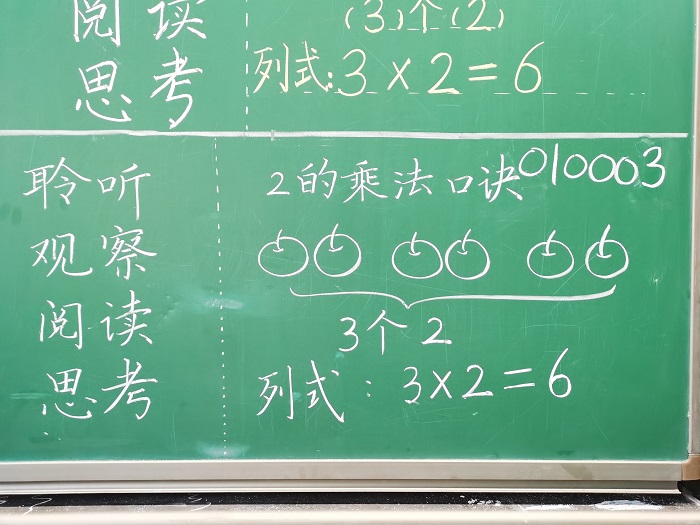 阅读 (3)个(2)
思考 列式:3×2=6
聆听 2的乘法口诀010003
观察
阅读 3个2
思考 列式:3×2=6